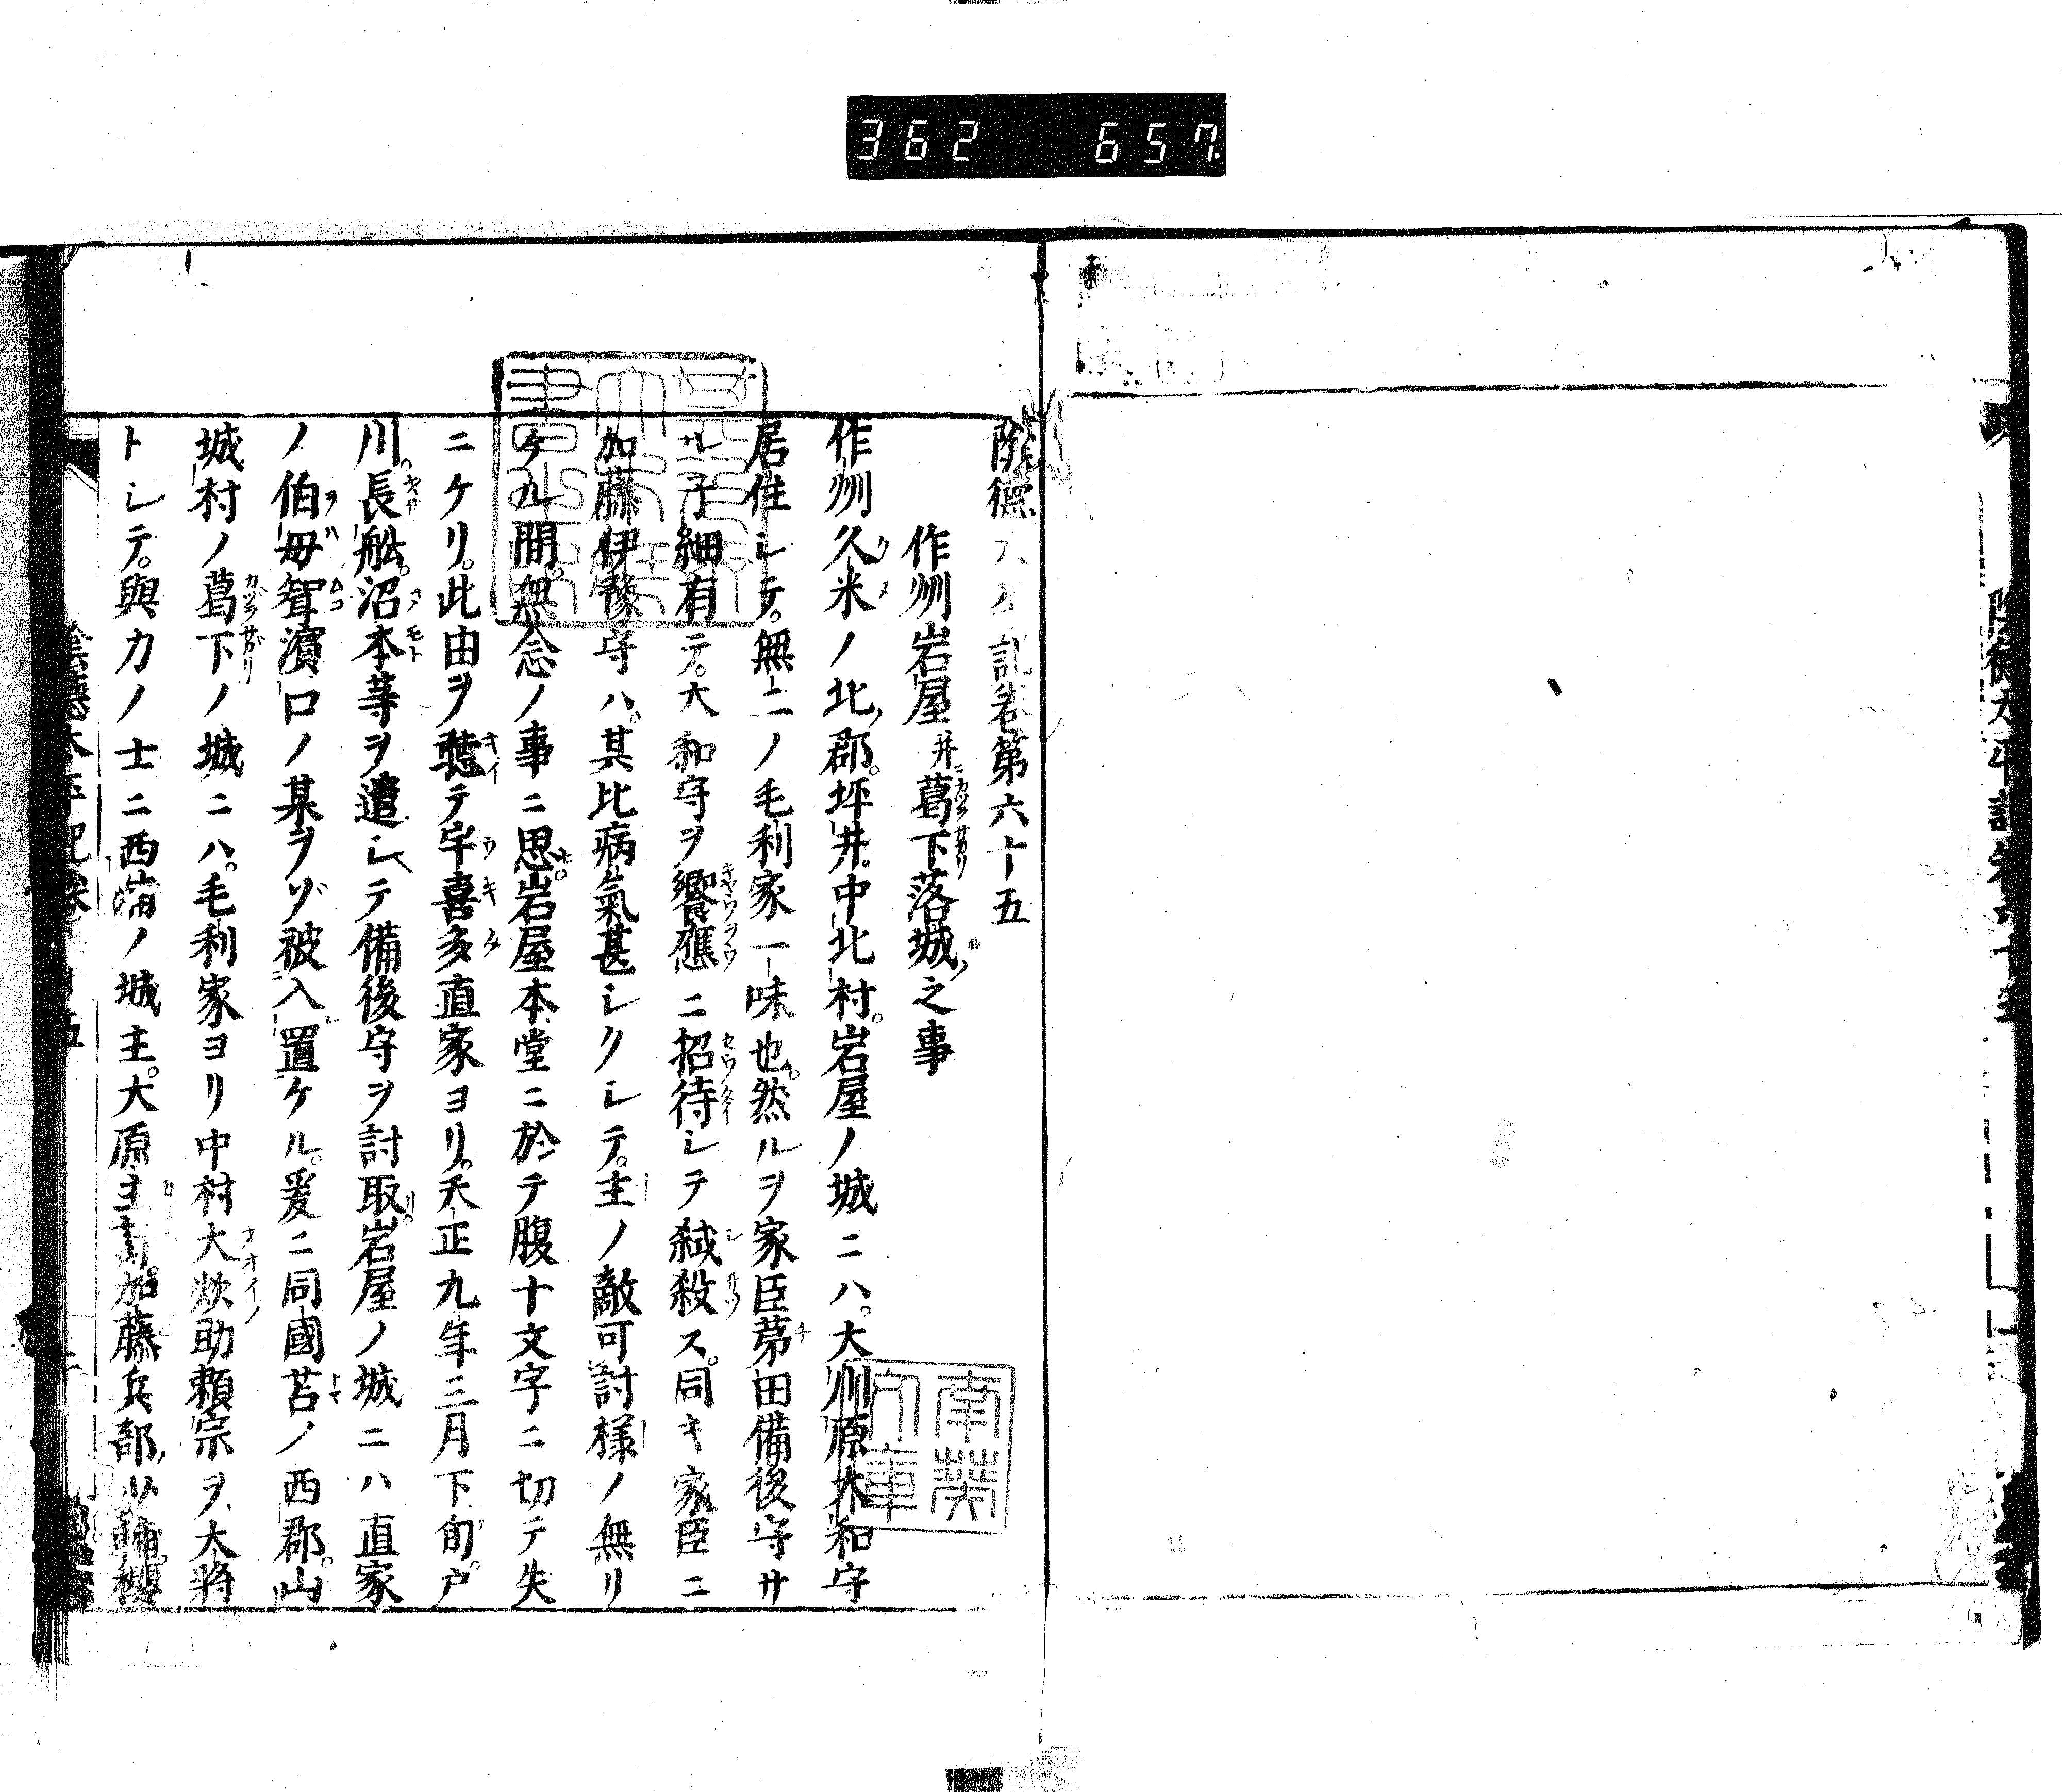 362 657
陰德太平記卷第六十五
作州岩屋并葛下落城之事
作州久米ノ北郡。坪井。中北村。岩屋ノ城ニハ。大川原大和守
居住シテ。無二ノ毛利家一味也。然ルヲ家臣芦田備後守サ
ル子細有テ。大和守ヲ饗應ニ招待シテ弑殺ス。同キ家臣ニ
加藤伊豫守ハ。其比病氣甚シクシテ。主ノ敵可討様ノ無リ
ケル間。無念ノ事ニ思。岩屋本堂ニ於テ腹十文字ニ切テ失
ニケリ。此由ヲ聽テ宇喜多直家ヨリ。天正九年三月下旬。戸
川。長舩。沼本等ヲ遣シテ備後守ヲ討取。岩屋ノ城ニハ直家
ノ伯母聟濱口ノ某ヲゾ被入置ケル。爰ニ同國苫ノ西郡。山
城村ノ葛下ノ城ニハ。毛利家ヨリ中村大炊助頼宗ヲ大將
トシテ。與力ノ士ニ西浦ノ城主。大原主計。加藤兵部少輔。櫻
南葵文庫